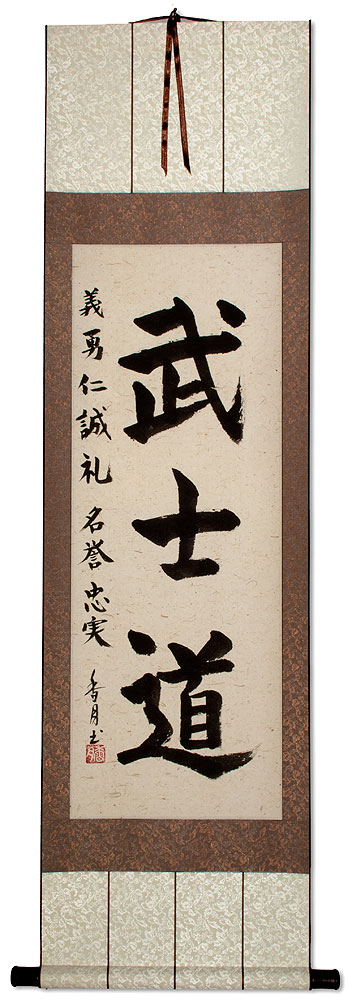 武士道
義勇仁誠礼名誉忠実
香月書